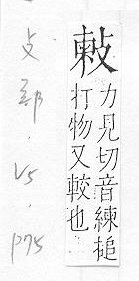 力見切音練搥
打物又較也
攴部.V5.p75